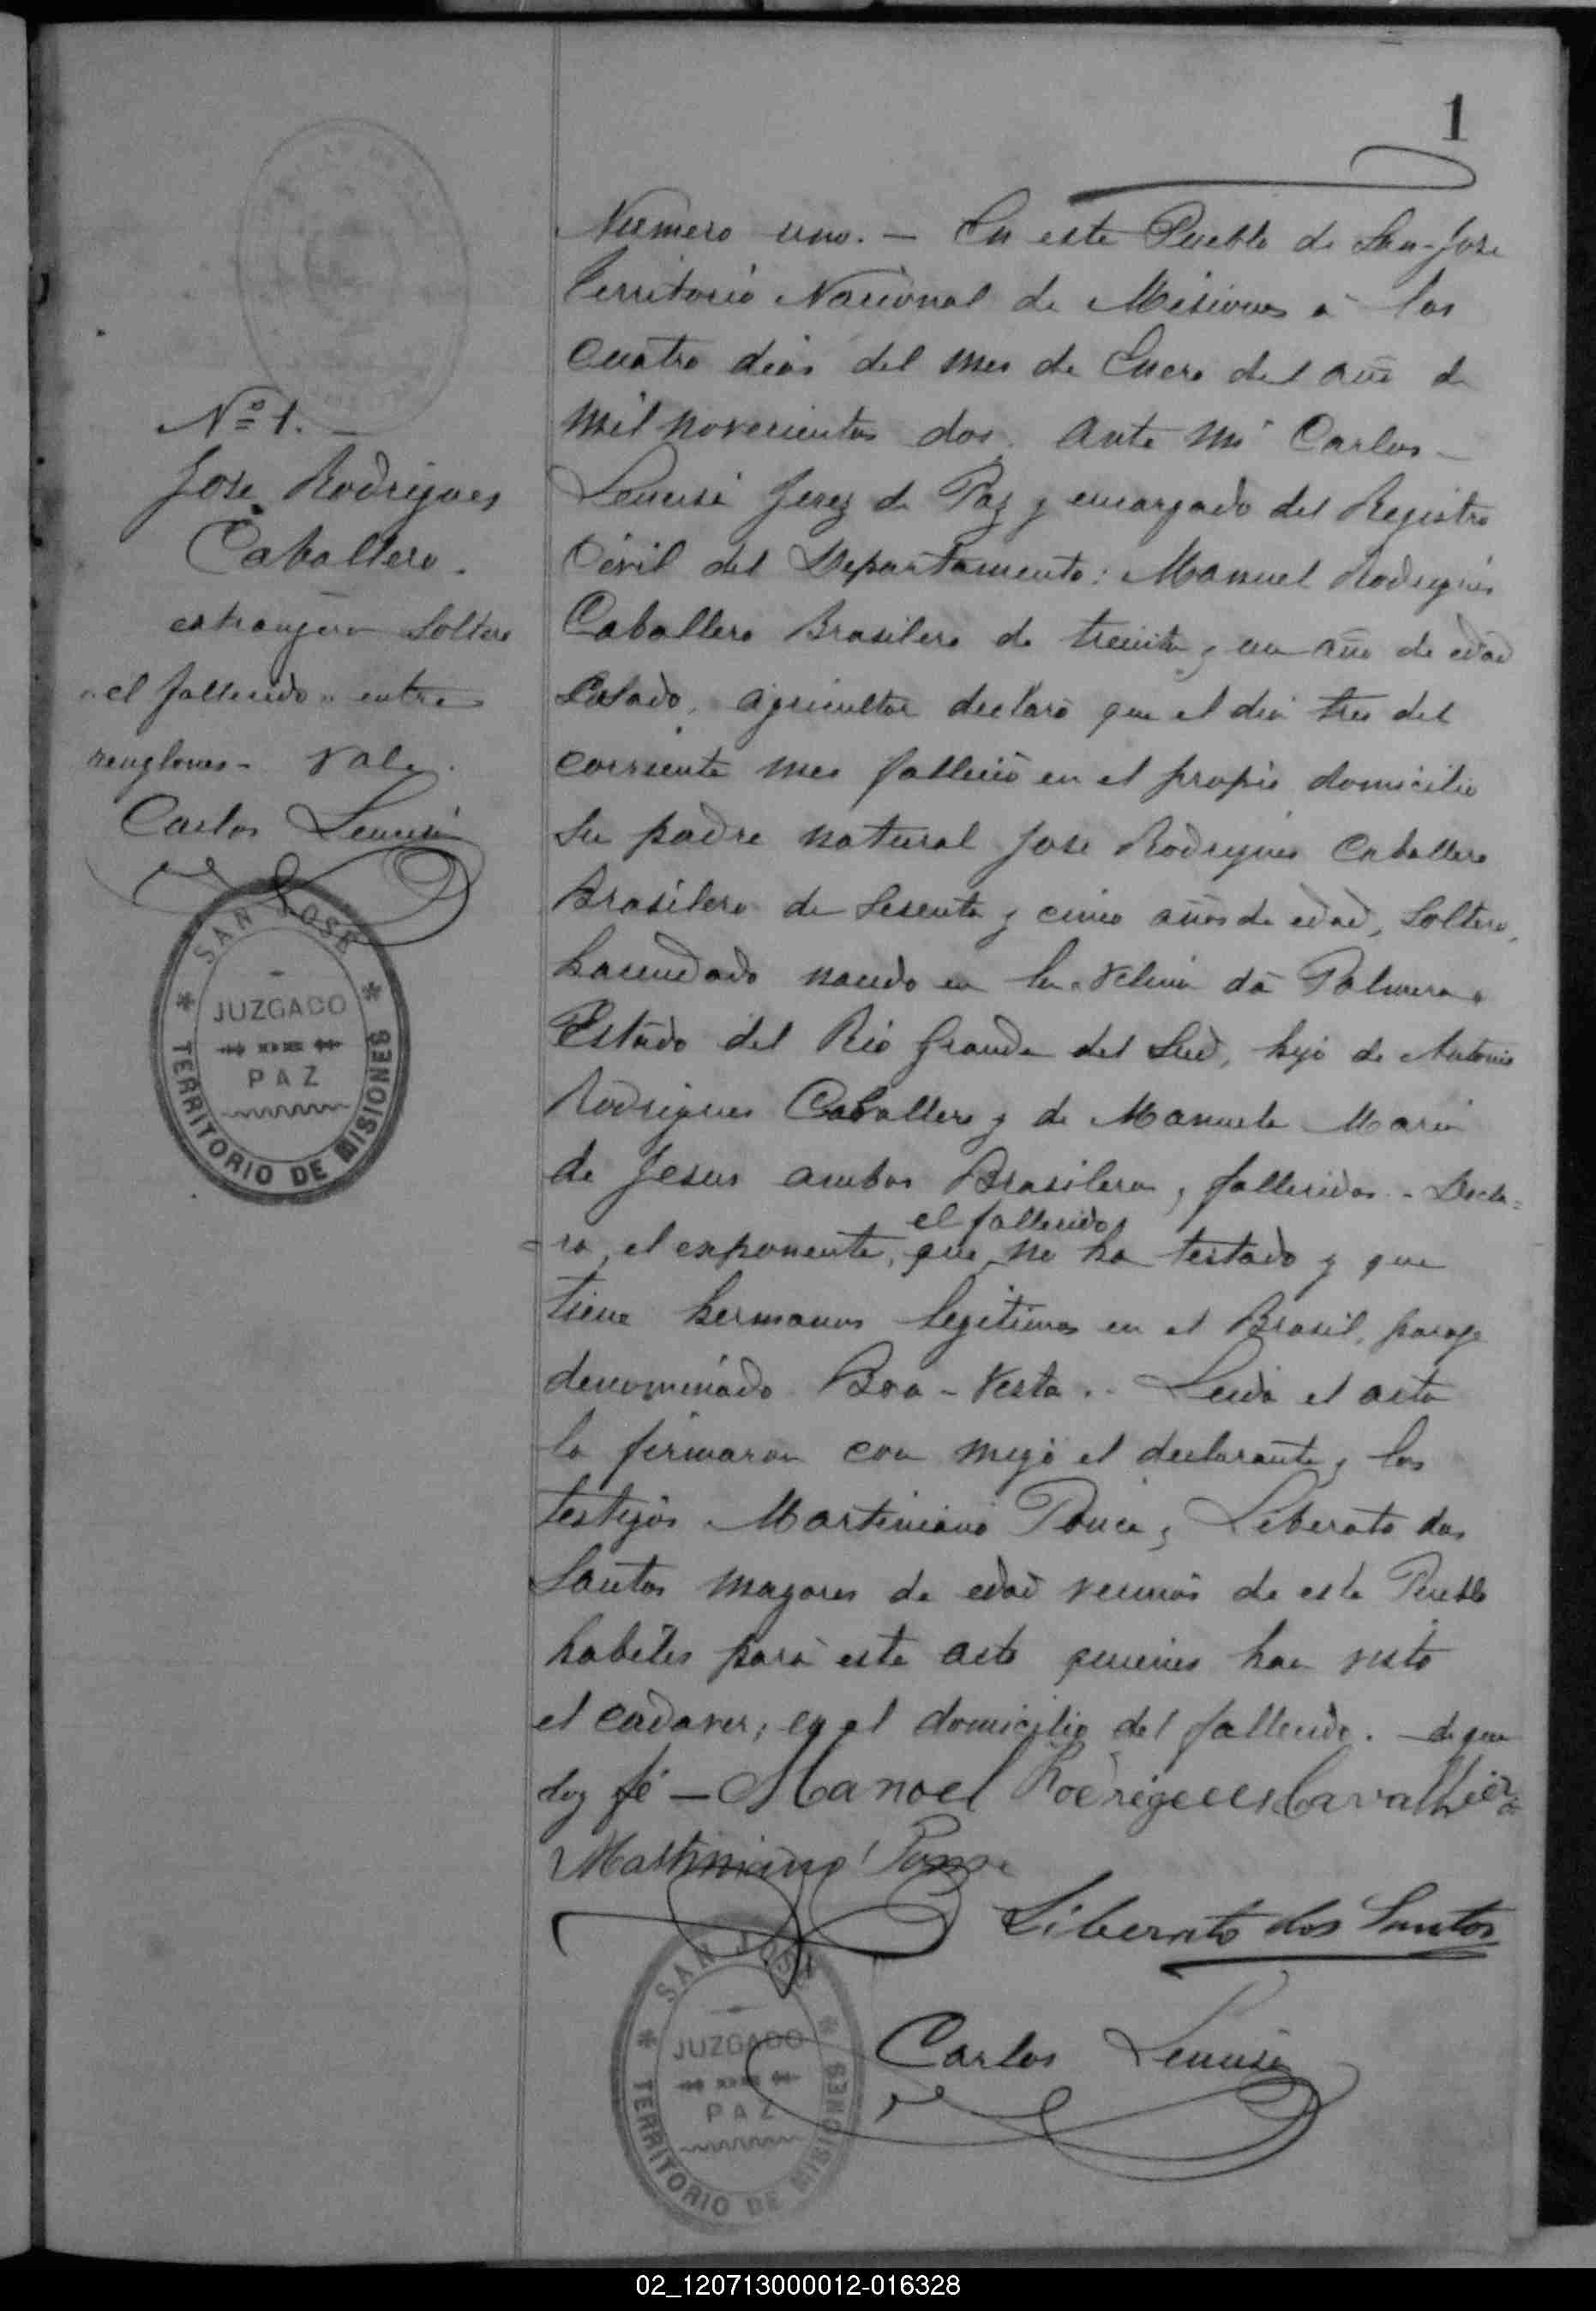 1
Nº 1. —
Jose Rodrigues
Caballero.
estranjero Soltero
"el fallecido" entre
renglones - Vale.
Carlos
SAN JOSE
JUZGADO
PAZ
TERRITORIO DE MISIONES
Numero uno. — En este Pueblo de San-Jose
Territorio Nacional de Misiones á los
Cuatro dias del mes de Enero del año de
mil novecientos dos. Ante mi Carlos
Juez de Paz y encargado del Registro
Civil del Departamento: Manuel Rodrigues
Caballero Brasilero de treinta y un año de edad
Casado, agricultor declaró que el dia tres del
corriente mes falleció en el propio domicilio
su padre natural Jose Rodrigues Caballero
Brasilero de sesenta y cinco años de edad, Soltero,
hacendado nacido en la da Palmera
Estado del Rio Grande del Sud, hijo de Antonio
Rodrigues Caballero y de Manuela Maria
de Jesus ambos Brasileros, fallecidos. - Decla=
=ra, el exponente, que el fallecido no ha testado y que
tiene hermanos legitimos en el Brasil, paraje
denominado Boa-Vista. - Leida el acta
la firmaron con migo el declarante y los
testigos Martiniano Ponce y Liberato dos
Santos mayores de edad vecinos de este Pueblo
habiles para este acto quienes han visto
el cadaver, en el domicilio del fallecido. — de que
doy fé — Manoel Rodrigues Cavalheiro
Martiniano Ponce
Liberato dos Santos
SAN JOSE
JUZGADO
PAZ
TERRITORIO DE MISIONES
Carlos
02_120713000012-016328